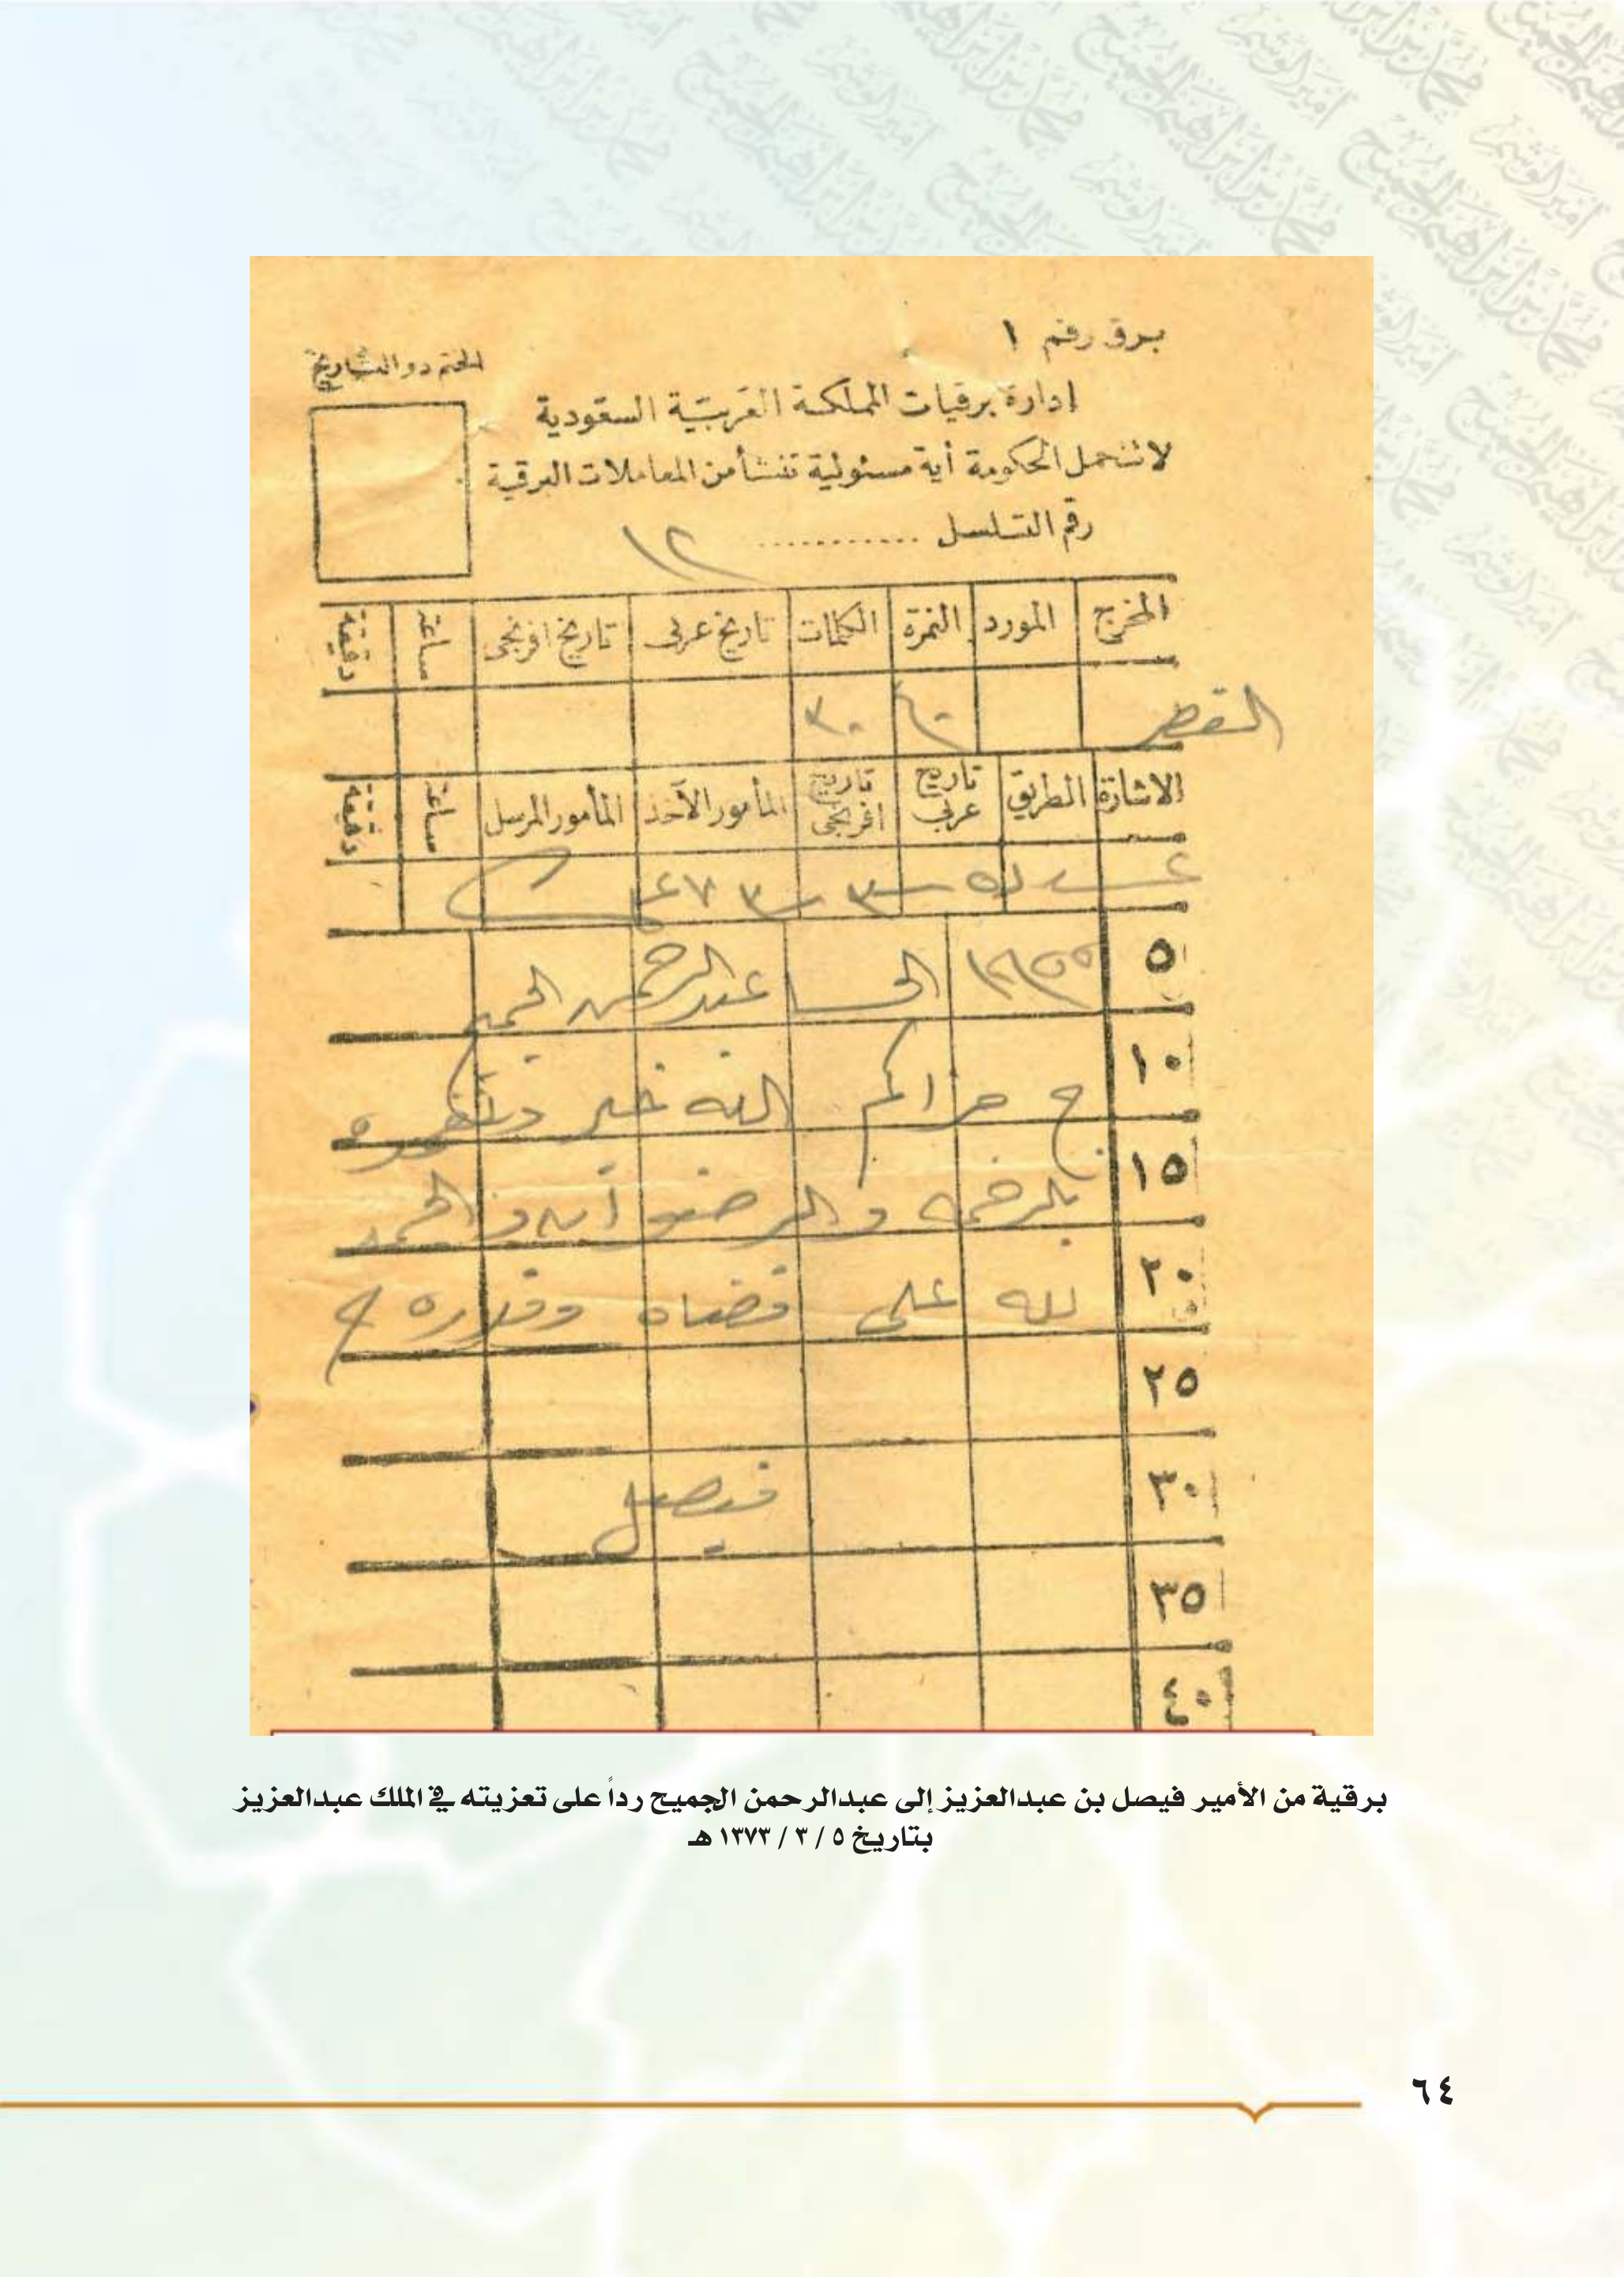 برق رقم ١
الختم ذو التاريخ
إدارة برقيات المملكة العربية السعودية
لا تتحمل الحكومة أية مسئولية تنشأ من المعاملات البرقية
رقم التسلسل ............ ١٢
المخرج المورد النمرة الكلمات تاريخ عربى تاريخ افرنجى ساعة دقيقة
٣٠
الاشارة الطريق تاريخ عربي تاريخ افرنجى المأمور الآخذ المأمور المرسل ساعة دقيقة
٥ الى عبدالرحمن الجميح
١٠ ج جزاكم الله خير وتغمده
١٥ بالرحمه والرضوان والحمد
٢٠ لله على قضاه وقدره
٢٥
٣٠ فيصل
٣٥
٤٠
برقية من الأمير فيصل بن عبدالعزيز إلى عبدالرحمن الجميح رداً على تعزيته في الملك عبدالعزيز
بتاريخ ٥ / ٣ / ١٣٧٣ هـ
٦٤